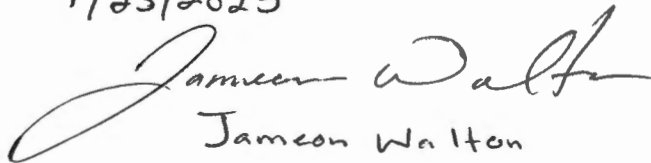 1/23/2025
Jameon Walton
Jameon Walton